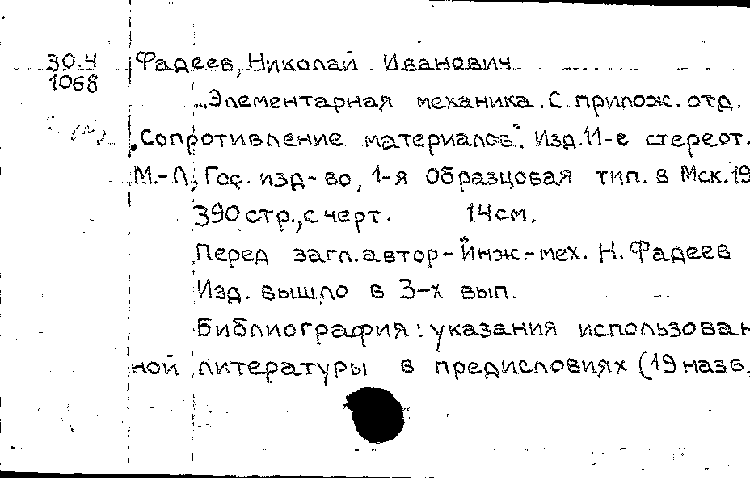 30.4 Фадеев, Николай Иванович
1068
Элементарная механика. С прилож. отд.
"Сопротивление материалов". Изд. 11-е стереот.
М.-Л., Гос. изд-во, 1-я Образцовая тип. в Мск. 19
390 стр., с черт. 14 см.
Перед загл. автор - Инж-мех. Н. Фадеев
Изд. вышло в 3-х вып.
Библиография: указания использован
ной литературы в предисловиях (19 назв.